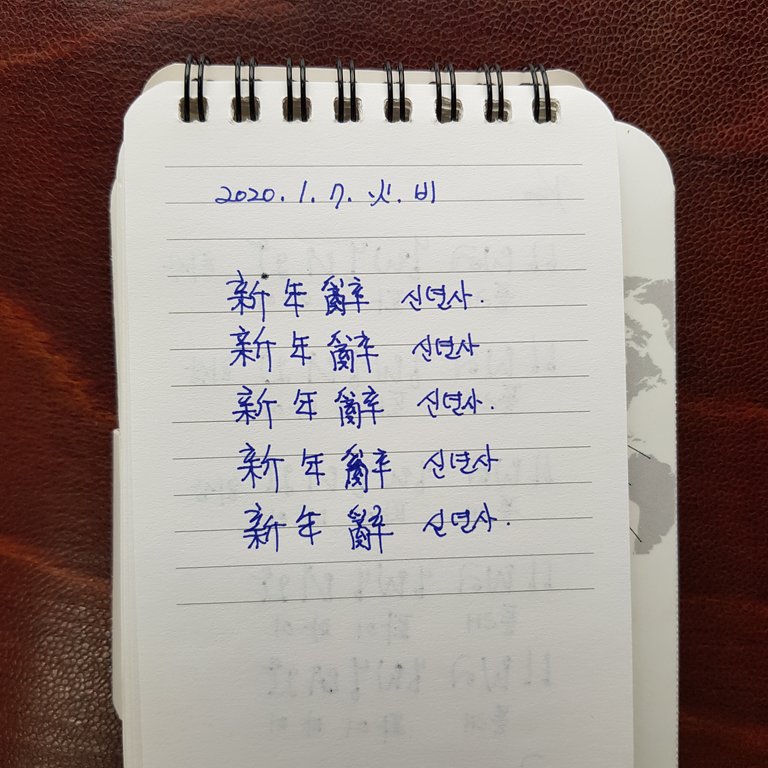 2020. 1. 7. 火. 비
新年辭 신년사.
新年辭 신년사
新年辭 신년사.
新年辭 신년사
新年辭 신년사.